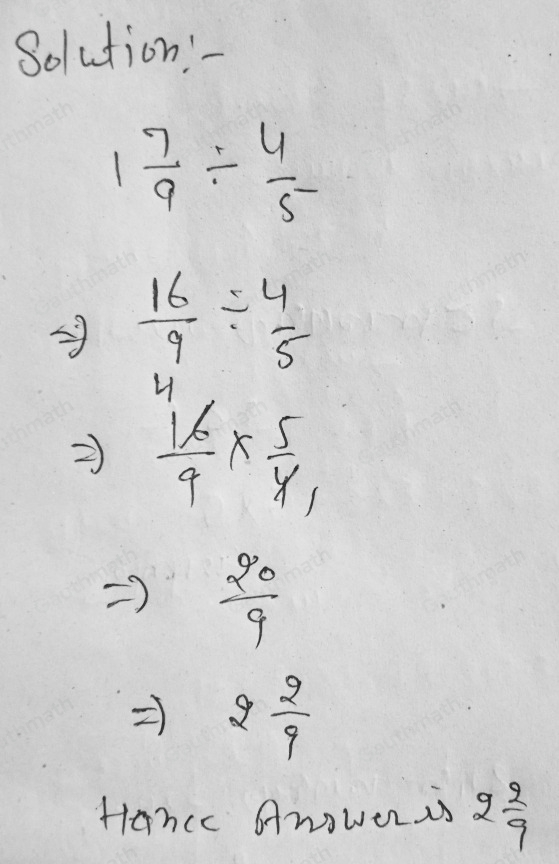 Solution:-
1 7/9 ÷ 4/5
⇒ 16/9 ÷ 4/5
4
⇒ 16/9 × 5/4 1
⇒ 20/9
⇒ 2 2/9
Hance Answer is 2 2/9